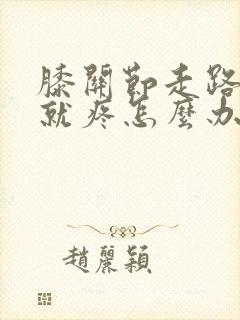 膝關節走路
就疼怎麼办
趙麗穎